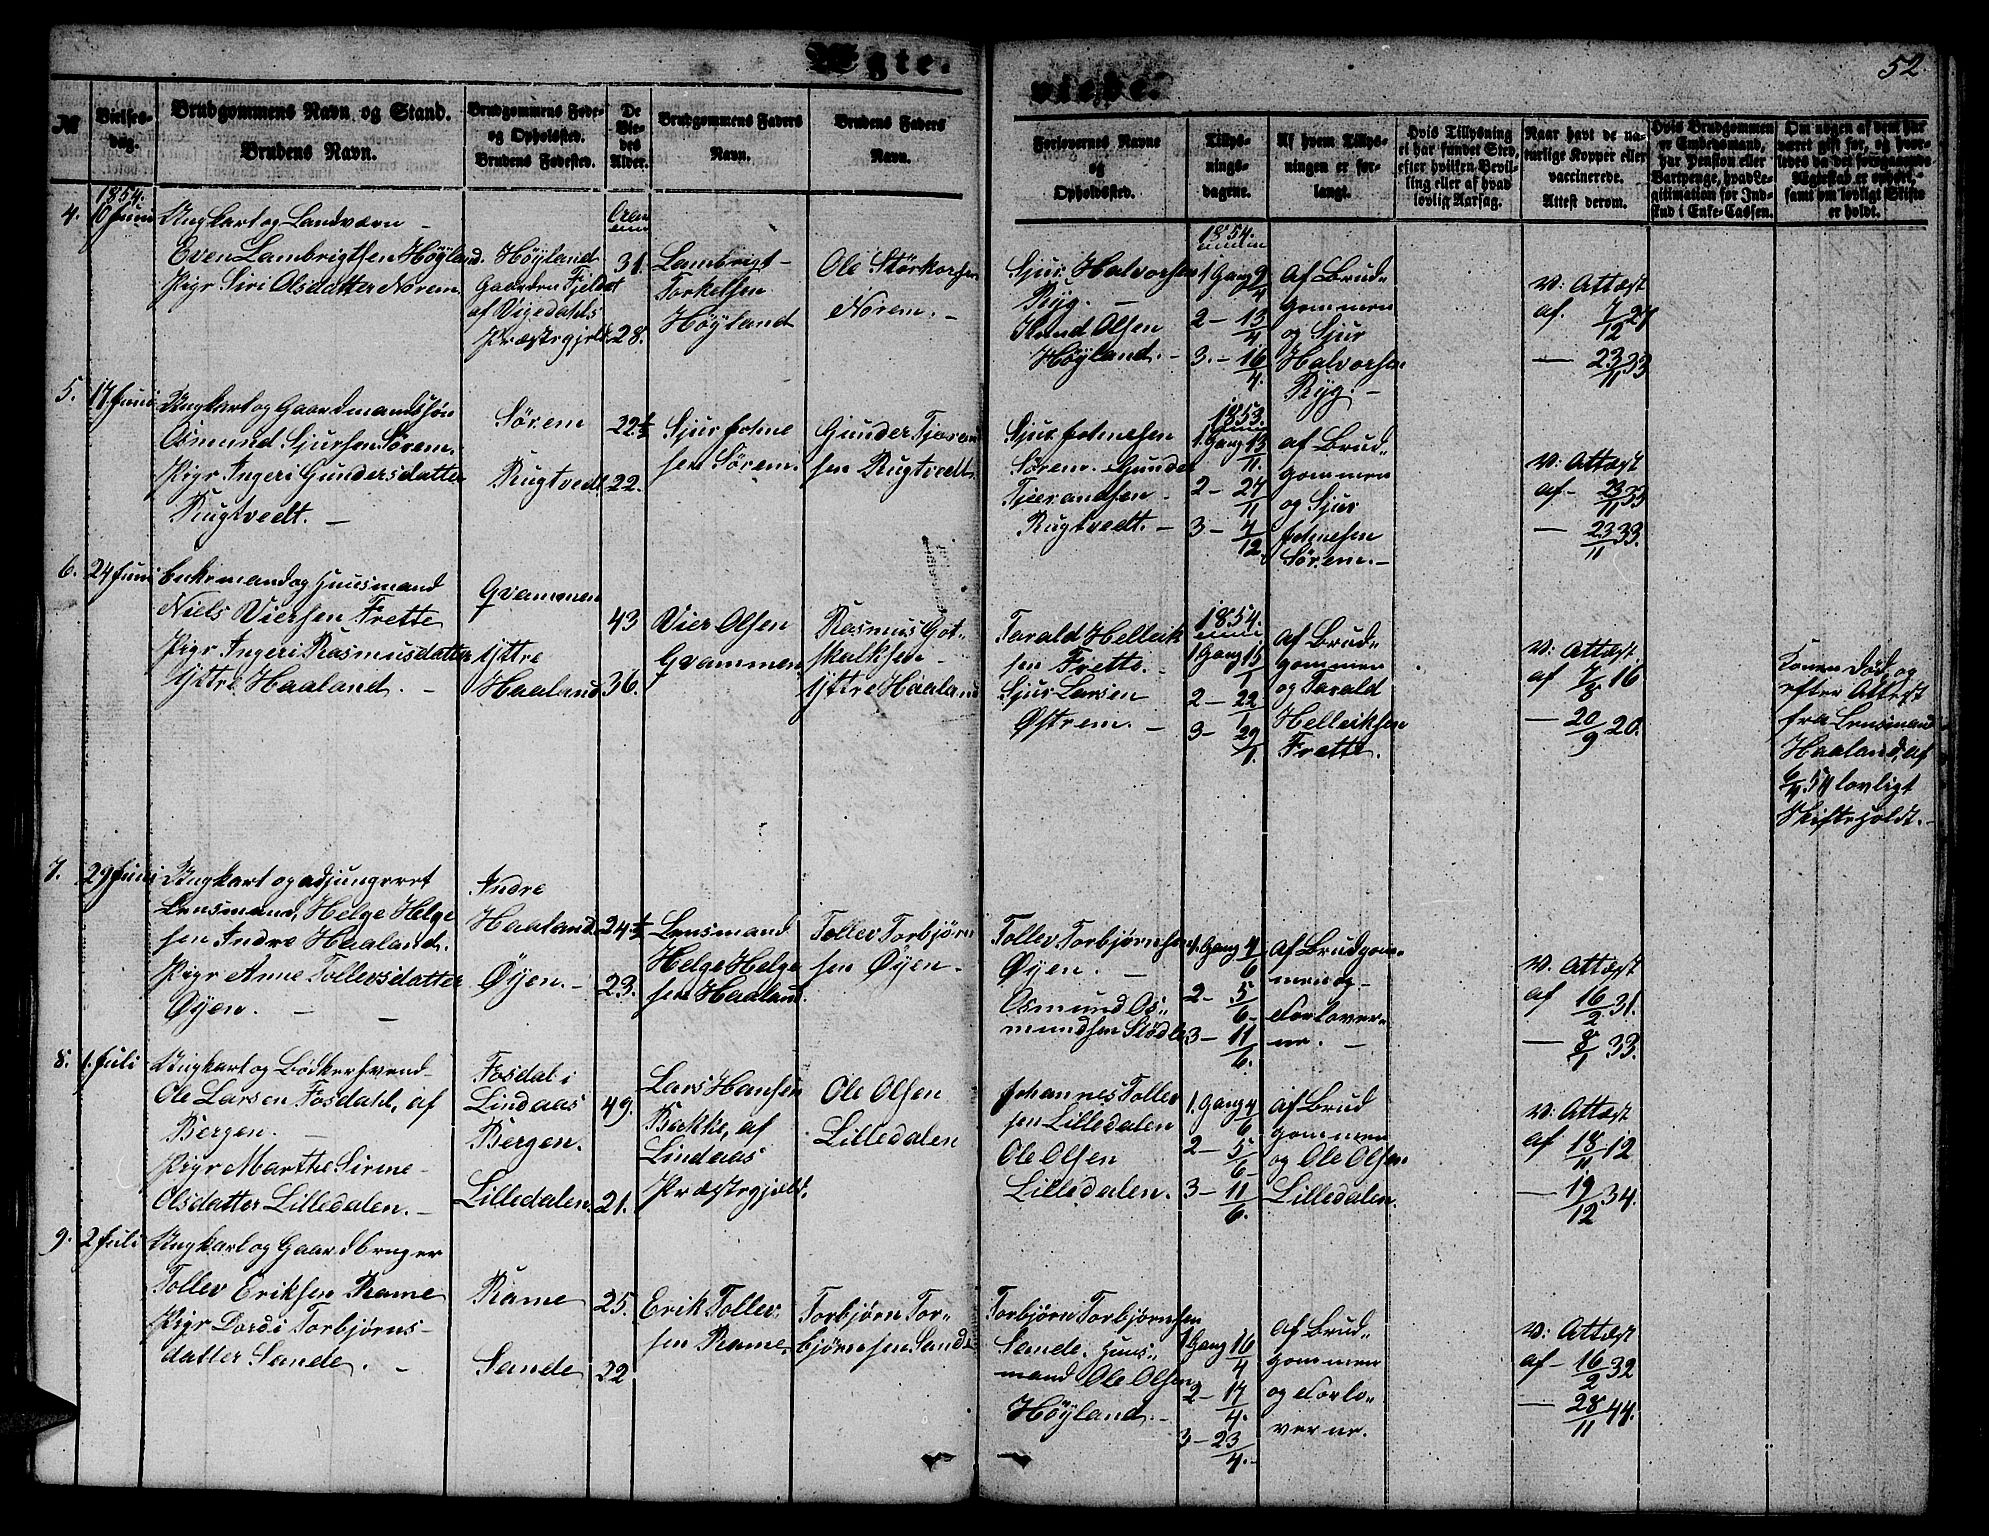 Ægte-
viede.
52
№
Vielses-
dag.
Brudgommens Navn og Stand.
Brudens Navn.
Brudgommens Føde-
og Opholdssted.
Brudens Fødested.
De
Vie-
des
Alder.
Brudgommens Faders
Navn.
Brudens Faders
Navn.
Forlovernes Navne
og
Opholdssted.
Tillys-
nings-
dagene.
Af hvem Tillys-
ningen er for-
langt.
Hvis Tillysning
ei har fundet Sted,
efter hvilken Bevil-
ling eller af hvad
lovlig Aarsag.
Naar havt de na-
turlige Kopper eller
vaccinerede.
Attest derom.
Hvis Brudgommen
er Embedsmand,
har Pension eller
Vartpenge, hvad Le-
gitimation for Ind-
skud i Enke-Cassen.
Om nogen af dem har
været gift før, og hvor-
ledes da det foregaaende
Ægteskab er ophørt,
samt om lovligt Skifte
er holdt.
1854.
4.
10 Juni
Ungkarl og Landværn
Even Lambrigtsen Höyland.
Pige Siri Olsdatter Norem
Höyland
Gaarden Fjeldet
af Vigedahls
Præstegjeld
31.
28.
Lambrigt
Torkelsen
Höyland
Ole Störkorsen
Norem. -
Sjur Halvorsen
Ryg. -
Knud Olsen
Höyland. -
1854.
1 Gang 9/4
2 - 13/4
3. - 16/4.
Af Brud-
gommen
og Sjur
Halvorsen
Ryg. -
v: Attest
af. 7/12 27
- 23/11 33
5.
17 Juni
Ungkarl og Gaardmandssøn
Osmund Sjursen Sörem.
Pige Ingeri Gundersdatter
Rugtvedt. -
Sörem
Rugtvedt
22½
22.
Sjur Johne
sen Sörem.
Gunder Tjeran
sen Rugtvedt
Sjur Johnesen
Sörem. Gunder
Tjerandsen
Rugtvedt. -
1853.
1. Gang 13/11.
2 - 27/11
3 - 4/12.
af Brud-
gommen
og Sjur
Johnesen
Sörem. -
v: Attest
af - 23/11 33
- 23/11 33.
6.
24 Juni
Enkemand og Huusmand
Niels Viersen Frette
Pige Ingeri Rasmusdatter
Yttre Haaland. -
Qvammen
Yttre
Haaland
43
36.
Vier Olsen
Qvammen
Rasmus Got-
skalksen
Yttre Haaland
Tarald Helleik
sen Frette. -
Sjur Larsen
Østrem. -
1854.
1 Gang 15/1
2 - 22/1
3 - 29/1.
af Brud-
gommen
og Tarald
Helleiksen
Frette.
v: Attest
af 7/8 16
- 20/9 20.
Konen död, og
efter Attest
fra Lensmand
Haaland, af
54 lovligt
Skifte holdt. -
7.
29 Juni
Ungkarl og adjungeret
Lensmand, Helge Helge
sen Indre Haaland.
Pige Anne Tollevsdatter
Øyen. -
Indre
Haaland.
Øyen. -
24½
23.
Lensmand
Helge Helge
sen Haaland.
Tollev Torbjørn
sen Øyen. -
Tollev Torbjørnsen
Øyen. -
Osmund Os-
mundsen Stödle
1. Gang 4/6
2 - 5/6 -
3 - 11/6.
af Brudgom-
men og
Forlover-
ne. -
v. Attest
af 16/2 31.
- 8/1 33.
8.
1. Juli
Ungkarl og Bödkersvend
Ole Larsen Fosdahl, af
Bergen. -
Pige Marthe Sirine
Olsdatter Lilledalen. -
Fosdal i
Lindaas
Bergen.
Lilledalen.
49.
21.
Lars Hansen
Bakke, af
Lindaas
Præstegjeld.
Ole Olsen
Lilledalen
Johannes Tollev
sen Lilledalen
Ole Olsen
Lilledalen.
1. Gang 4/6
2 - 5/6 -
3 - 11/6.
af Brud
gommen
og Ole Olsen
Lilledalen.
v: Attest
af 18/11 12
- 19/12 34.
9.
2 Juli
Ungkarl og Gaardbruger
Tollev Eriksen Rame
Pige Dordi Torbjørns-
datter Sande. -
Rame
Sande
25.
22
Erik Tollev-
sen Rame.
Torbjørn Tor-
bjørnsen Sande
Torbjørn Torbjørnsen
Sande. Huus-
mand Ole Olsen
Höyland. -
1 Gang 16/4
2 - 17/4.
3 - 23/4. -
af Brud-
gommen
og Forlo-
verne.
v: Attest
af - 16/2 32
- 28/11 44.